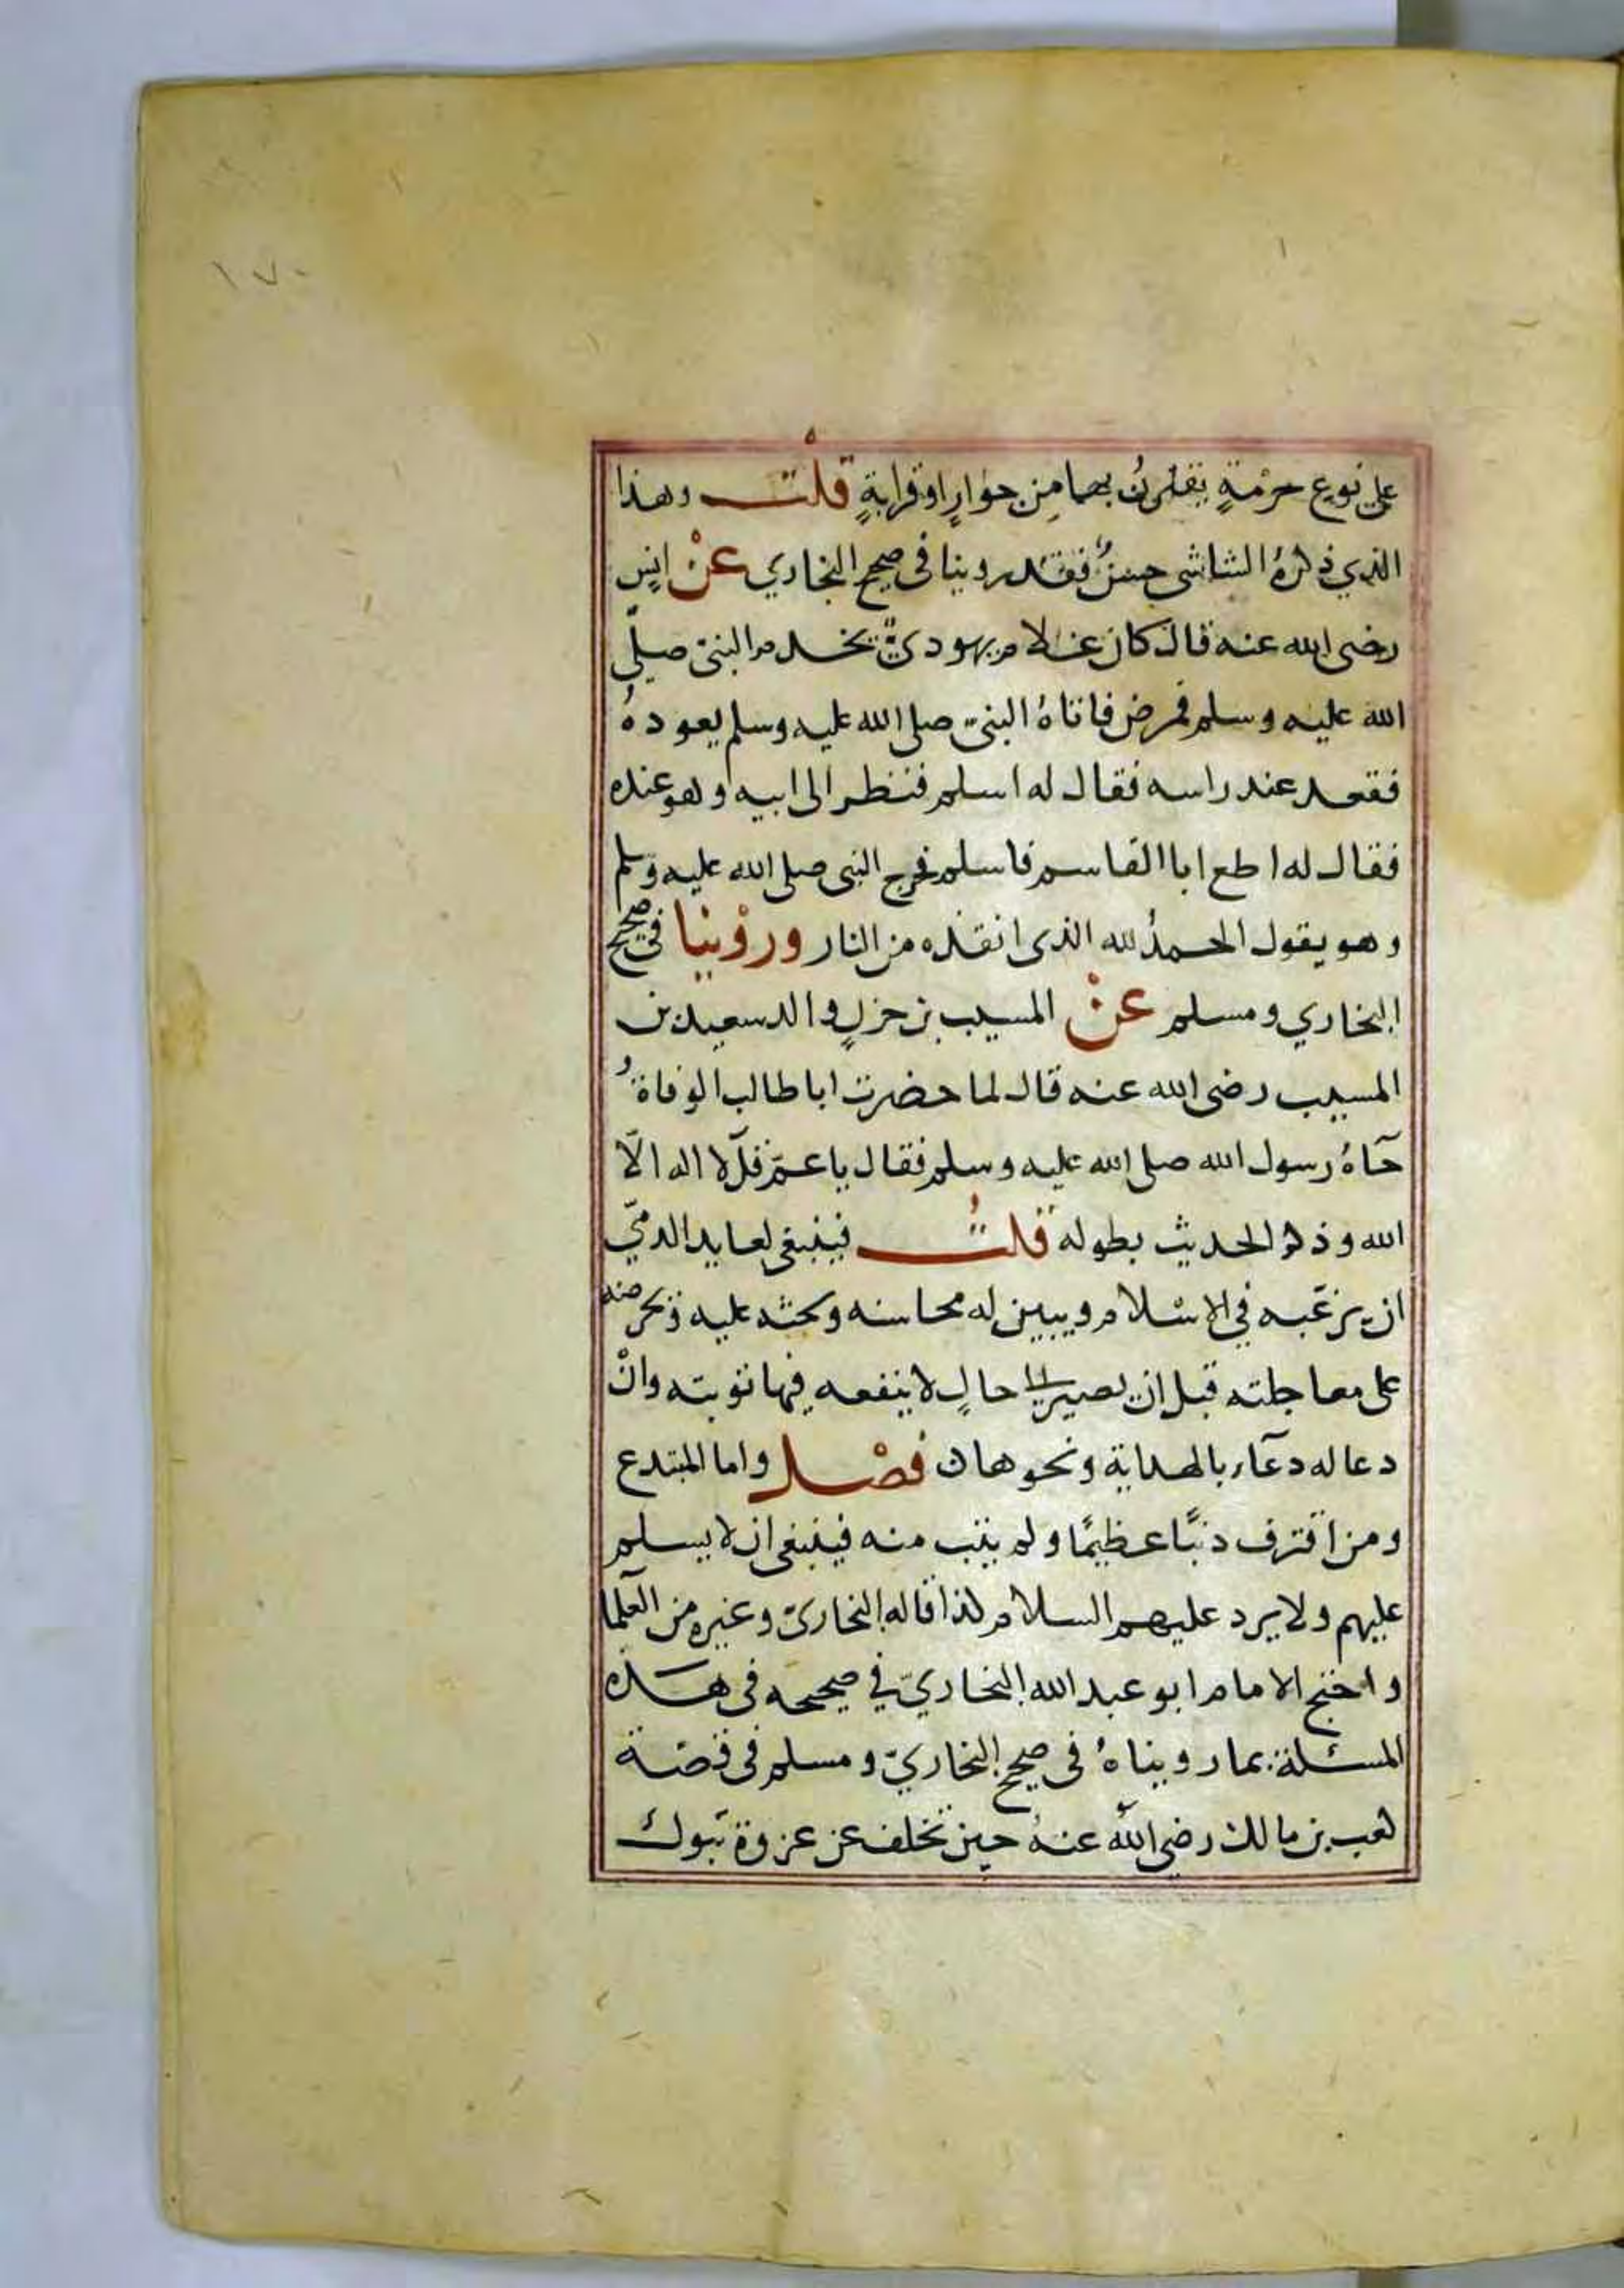 ١٧٠
على نوع حرْمةٍ يقترنُ بهما مِن جوارٍ او قرابةٍ قلْت وهذا
الذي ذكرهُ الشاشى حسنٌ فقد روينا فى صحيح البخاري عنْ انسٍ
رضى الله عنه قال كان غلام يهوديٌّ يخدم النبىّ صلّى
الله عليه وسلم فمرض فاتاهُ النبىّ صلى الله عليه وسلم يعودهُ
فقعد عند راسه فقال له اسلم فنظر الى ابيه وهو عنده
فقال له اطع ابا القاسم فاسلم فخرج النبى صلى الله عليه وسلم
وهو يقول الحمدُ لله الذى انقذه من النار وروْينا فى صحيح
البخاري ومسلم عنْ المسيب بن حزنٍ والد سعيد بن
المسيب رضى الله عنه قال لما حضرت ابا طالب الوفاةُ
جآءهُ رسول الله صلى الله عليه وسلم فقال يا عمّ قل لا اله الّا
الله وذكر الحديث بطوله قلتُ فينبغى لعايد الذميّ
ان يرغّبه في الاسْلام ويبين له محاسنه ويحثه عليه ويحرضه
على معاجلته قبل ان يصير الى حالٍ لا ينفعه فيها توبته وانْ
دعا له دعآء بالهداية ونحوها فصْل واما المبتدع
ومن اقترف ذنبًا عظيمًا ولم يتب منه فينبغى ان لا يسلم
عليهم ولا يرد عليهم السلام كذا قاله البخارىّ وغيره من العلما
واحتج الامام ابو عبد الله البخاريّ في صحيحه فى هذه
المسئلة بما رويناهُ فى صحيح البخاريّ ومسلم فى قصّة
كعب بن مالك رضى الله عنهُ حين تخلف عن غزوة تبوك